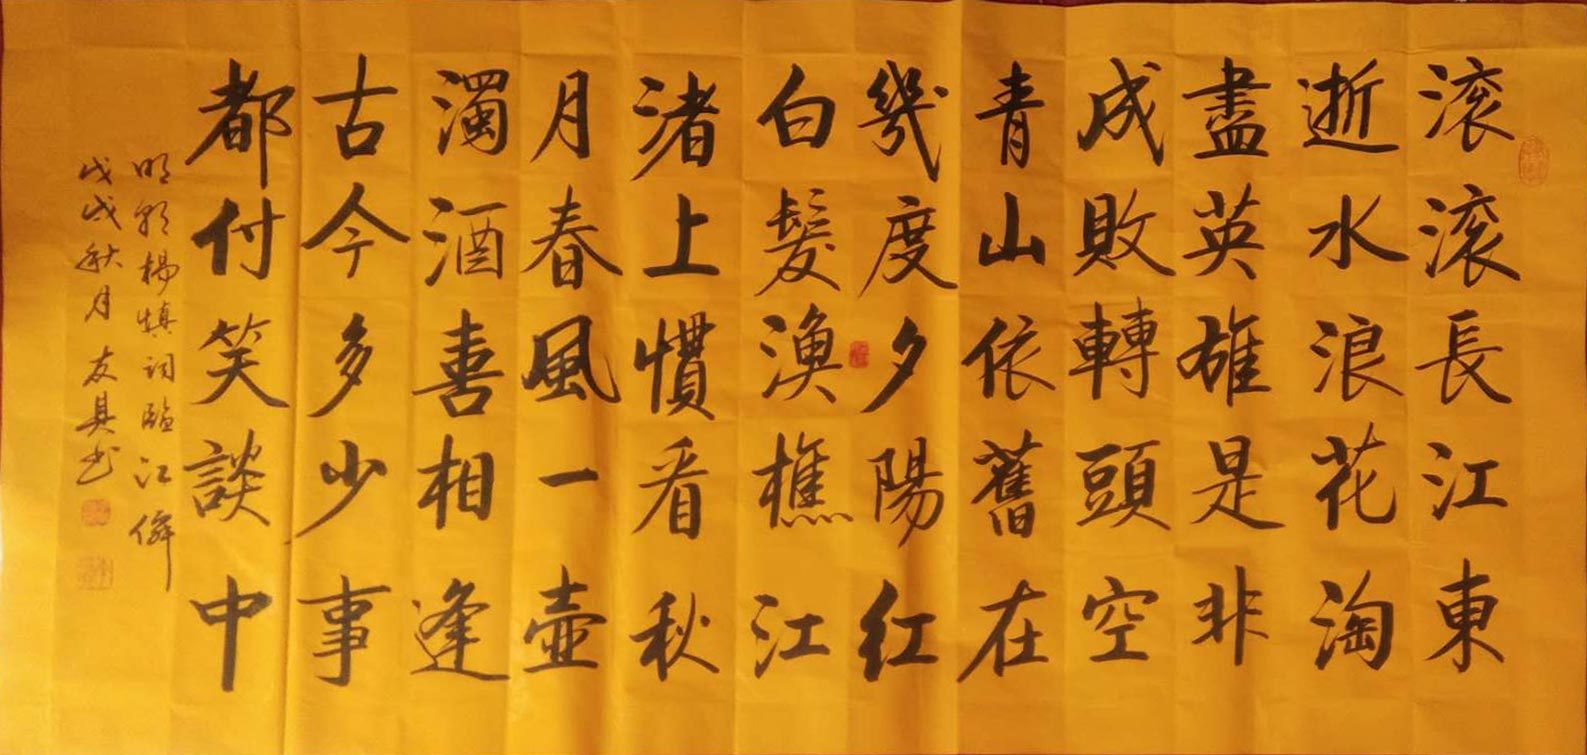 滚滚長江東
逝水浪花淘
盡英雄是非
成敗轉頭空
青山依舊在
幾度夕陽紅
白髮漁樵江
渚上慣看秋
月春風一壺
濁酒喜相逢
古今多少事
都付笑談中
明朝楊慎詞臨江僊
戊戌秋月友具书